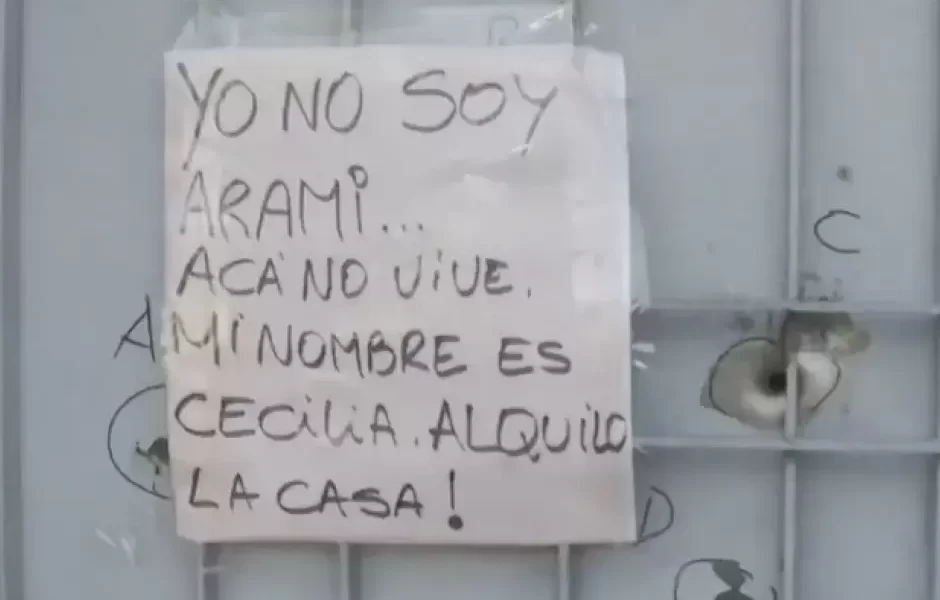 YO NO SOY
ARAMI...
ACÁ NO VIVE.
MI NOMBRE ES
CECILIA. ALQUILO
LA CASA!
A
C
D